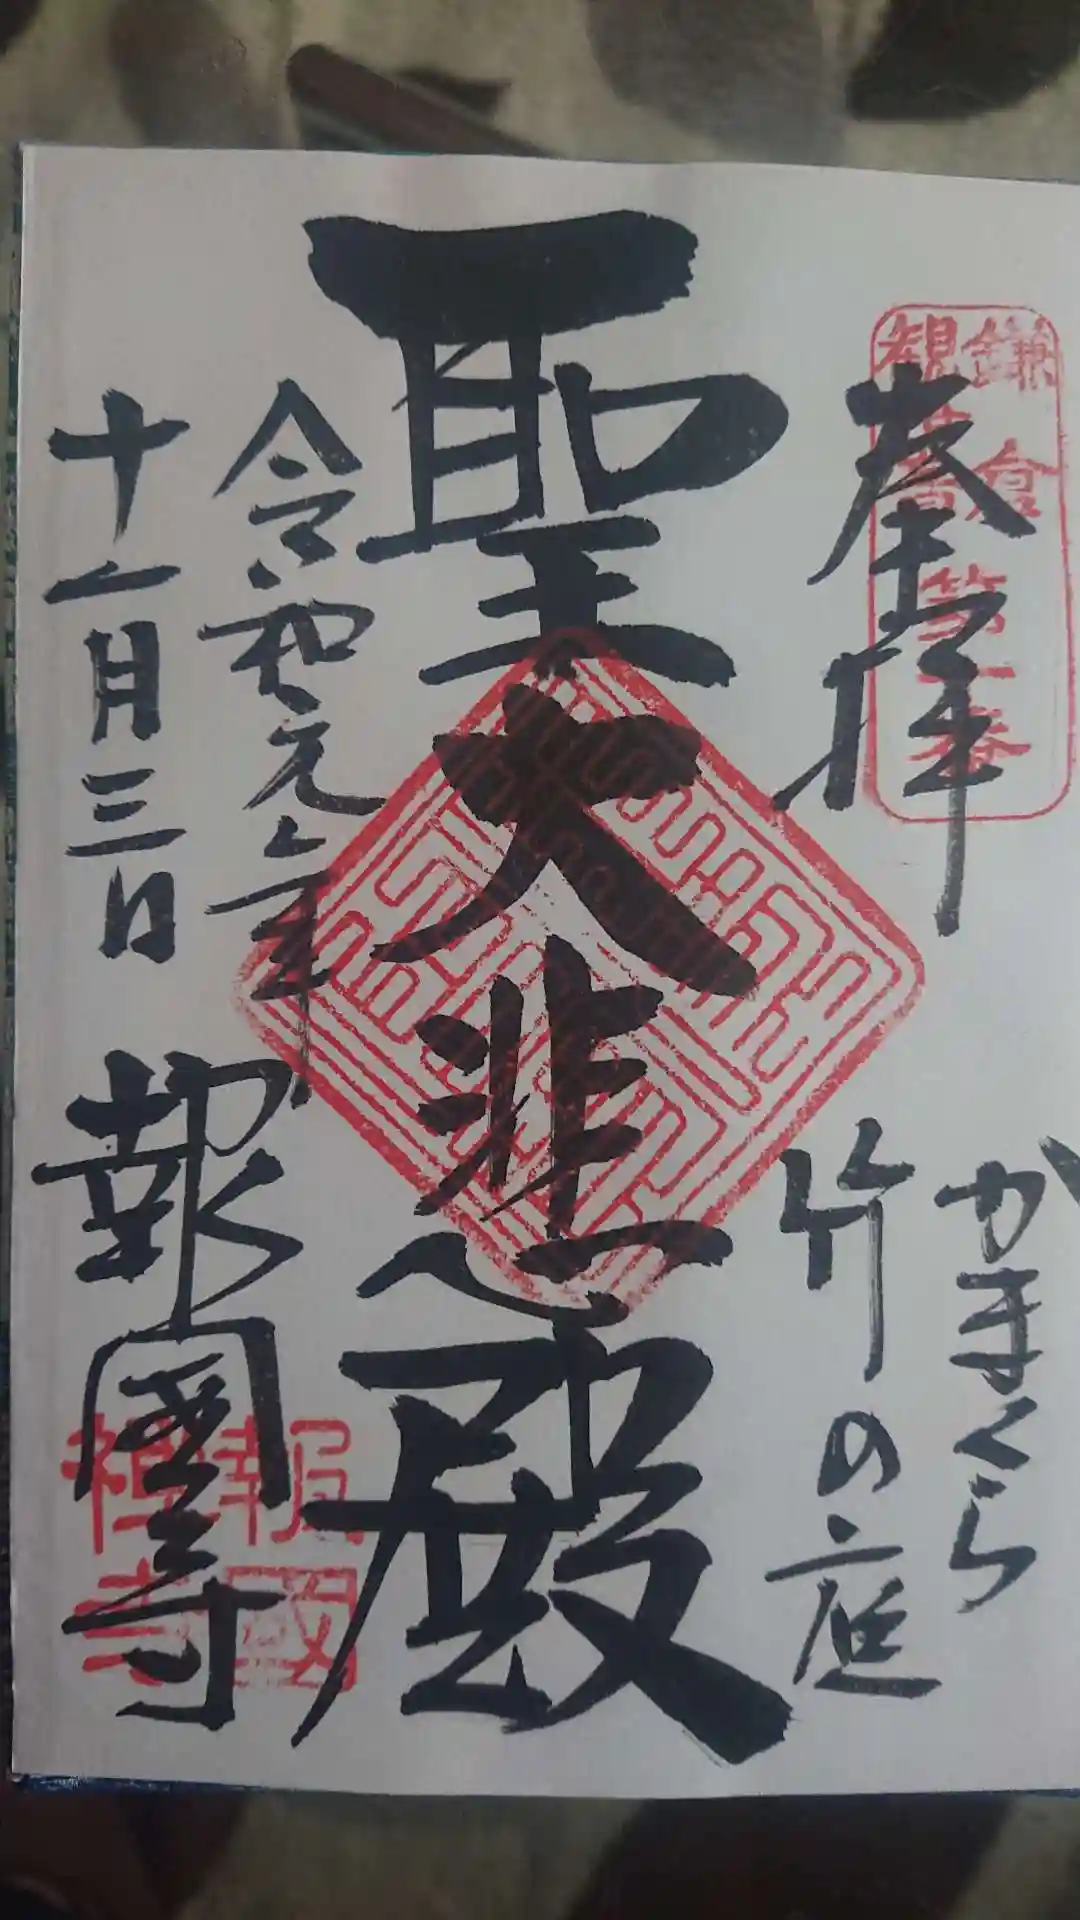 奉拝
かまくら
竹の庭
聖大悲殿
令和元年
十一月三日
報國寺
鎌倉
観世音第十番
報國
禅寺